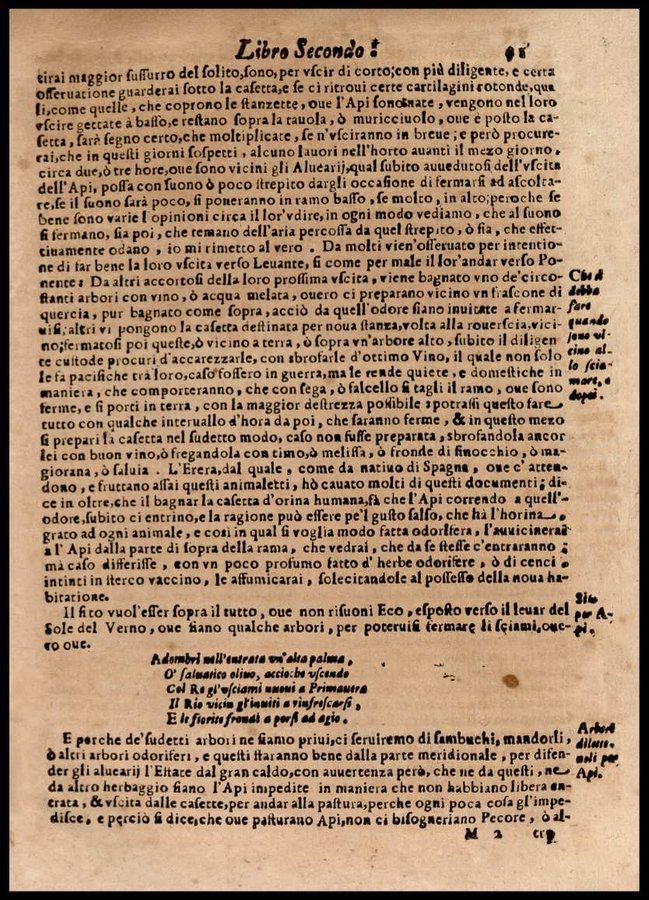 Libro Secondo.
tirai maggior suſſurro del ſolito, ſono, per vſcir di corto; con più diligente, e certa
oſſeruatione guarderai ſotto la caſetta, e ſe ci ritroui certe cartilagini rotonde, qua
li, come quelle, che coprono le ſtanzette, oue l'Api ſono nate, vengono nel loro
vſcire gettate à baſſo, e reſtano ſopra la tauola, ò muricciuolo, oue è poſto la ca-
ſetta, ſarà ſegno certo, che moltiplicate, ſe n'vſciranno in breue; e però procure-
rai, che in queſti giorni ſoſpetti, alcuno lauori nell'horto auanti il mezo giorno,
circa due, ò tre hore, oue ſono vicini gli Aluearij, qual ſubito auuedutoſi dell'vſcita
dell'Api, poſſa con ſuono ò poco ſtrepito dargli occaſione di fermarſi ad aſcolta-
re, ſe il ſuono ſarà poco, ſi poneranno in ramo baſſo, ſe molto, in alto; peroche ſe
bene ſono varie l'opinioni circa il lor'vdire, in ogni modo vediamo, che al ſuono
ſi fermano, ſia poi, che temano dell'aria percoſſa da quel ſtrepito, ò ſia, che effet-
tiuamente odano, io mi rimetto al vero. Da molti vien'oſſeruato per intentio-
ne di far bene la loro vſcita verſo Leuante, ſi come per male il lor'andar verſo Po-
nente: Da altri accortoſi della loro proſſima vſcita, viene bagnato vno de'circo-
ſtanti arbori con vino, ò acqua melata, ouero ci preparano vicino vn fraſcone di
quercia, pur bagnato come ſopra, acciò da quell'odore ſiano inuitate a fermar-
uiſi; altri vi pongono la caſetta deſtinata per noua ſtanza, volta alla rouerſcia, vici-
no; fermatoſi poi queſte, ò vicino a terra, ò ſopra vn'arbore alto, ſubito il diligen
te cuſtode procuri d'accarezzarle, con sbrofarle d'ottimo Vino, il quale non ſolo
le fa pacifiche trà loro, caſo foſſero in guerra, ma le rende quiete, e domeſtiche in
maniera, che comporteranno, che con ſega, ò falcello ſi tagli il ramo, oue ſono
ferme, e ſi porti in terra, con la maggior deſtrezza poſſibile: potraſſi queſto fare
tutto con qualche interuallo d'hora da poi, che ſaranno ferme, & in queſto mezo
ſi prepari la caſetta nel ſudetto modo, caſo non fuſſe preparata, sbroſandola ancor
lei con buon vino, ò fregandola con timo, ò meliſſa, ò fronde di finocchio, ò ma-
giorana, ò ſaluia. L'Erera, dal quale, come da natiuo di Spagna, oue c'atten-
dono, e fruttano aſſai queſti animaletti, hò cauato molti di queſti documenti; di-
ce in oltre, che il bagnar la caſetta d'orina humana, fà che l'Api correndo a quell'-
odore, ſubito ci entrino, e la ragione può eſſere pe'l guſto ſalſo, che hà l'horina,
grato ad ogni animale, e così in qual ſi voglia modo fatta odorifera, l'auuicinerai
a l'Api dalla parte di ſopra della rama, che vedrai, che da ſe ſteſſe c'entraranno;
mà caſo differiſſe, con vn poco profumo fatto d'herbe odorifere, ò di cenci
intinti in ſterco vaccino, le affumicarai, ſolecitandole al poſſeſſo della noua ha-
bitatione.
Che ſi
debba
fare
quando
ſono vi-
cino al-
lo ſcia-
mare, e
dopoi.
Il ſito vuol'eſſer ſopra il tutto, oue non riſuoni Eco, eſpoſto verſo il leuar del
Sole del Verno, oue ſiano qualche arbori, per poteruiſi fermare li ſciami, oue-
ro oue.
Sito
per A-
pi.
Adombri nell'entrata vn'alta palma,
O' ſaluatico oliuo, acciochè vſcendo
Col Re gl'vſciami nuoui a Primauera
Il Rio vicin gl'inuiti a rinfreſcarſi,
E le fiorite frondi a porſi ad agio.
E perche de'ſudetti arbori ne ſiamo priui, ci ſeruiremo di ſambuchi, mandorli,
ò altri arbori odoriferi, e queſti ſtaranno bene dalla parte meridionale, per difen-
der gli aluearij l'Eſtate dal gran caldo, con auuertenza però, che ne da queſti, ne
da altro herbaggio ſiano l'Api impedite in maniera che non habbiano libera en-
trata, & vſcita dalle caſette, per andar alla paſtura, perche ogni poca coſa gl'impe-
diſce, e perciò ſi dice, che oue paſturano Api, non ci biſogneriano Pecore, ò al-
Arbori
diletteuoli per
Api.
M 2